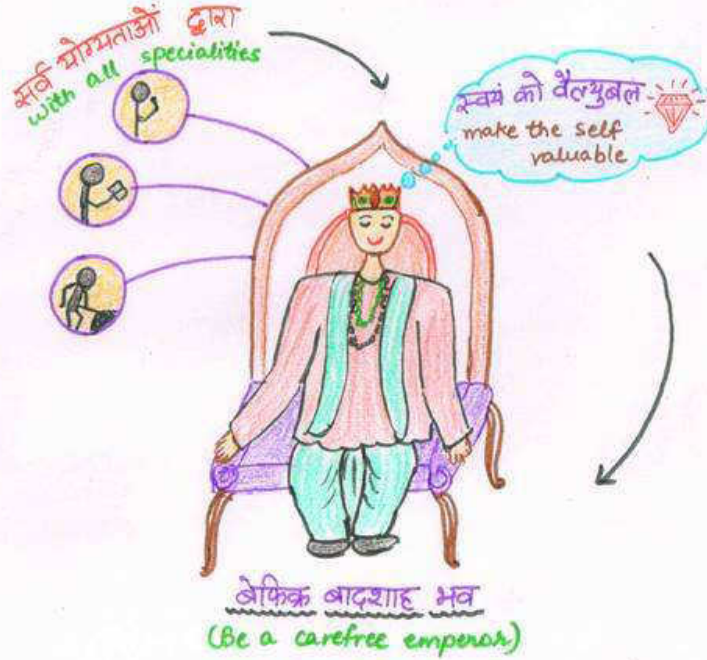 सर्व योग्यताओं द्वारा
with all specialities
स्वयं को वैल्युबल
make the self
valuable
बेफिक्र बादशाह भव
(Be a carefree emperor)